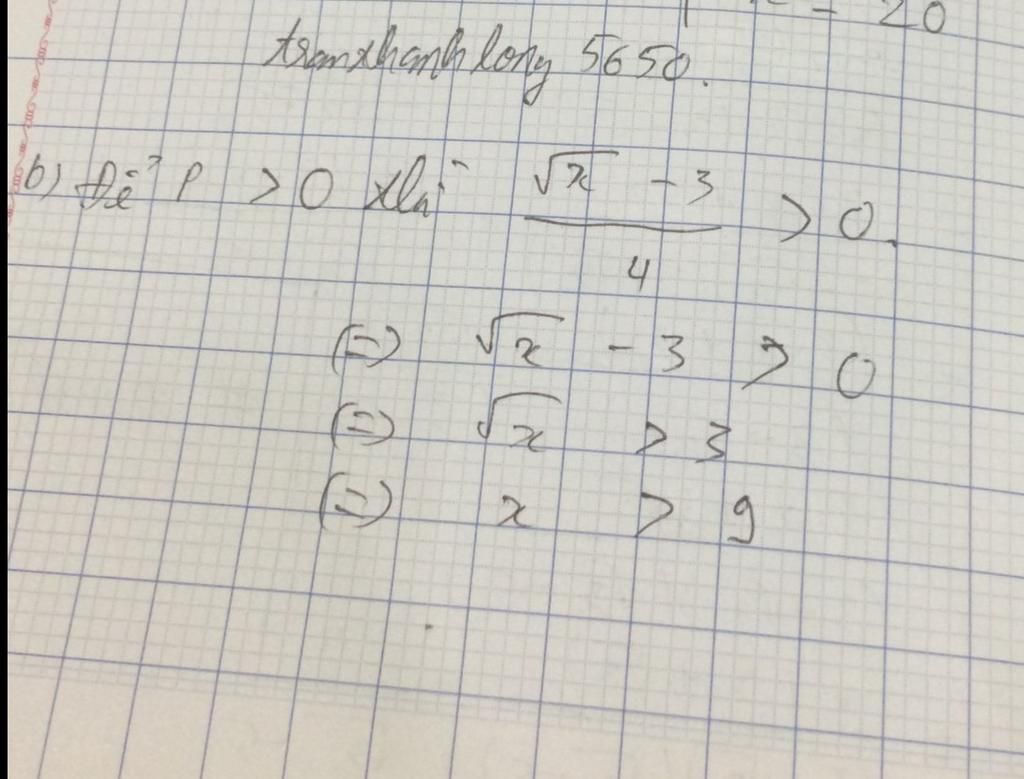 = 20
tranxhanhlong 5650.
b) Để P > 0 xhi √x - 3 / 4 > 0.
(=) √x - 3 > 0
(=) √x > 3
(=) x > 9